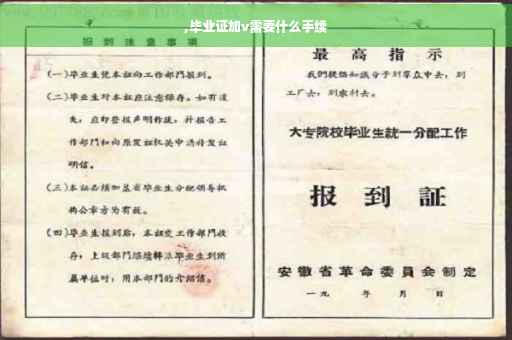 ,毕业证加v需要什么手续
报到注意事项
(一)毕业生凭本证向工作部門报到。
(二)毕业生对本证应注意保存。如有遗
失,应即登报声明作废,并报告工
作部門和向原发证机关申請补发证
明信。
(三)本证必须加盖省毕业生分配领导机
构公章方为有效。
(四)毕业生报到后,本证交工作部門收
存,上級部門
毕业生到所
属单位时,用本部門的介紹信。
最高指示
我們提倡知識分子到羣众中去,到
工厂去,到农村去。
大专院校毕业生統一分配工作
报到証
安徽省革命委員会制定
一九 年 月 日